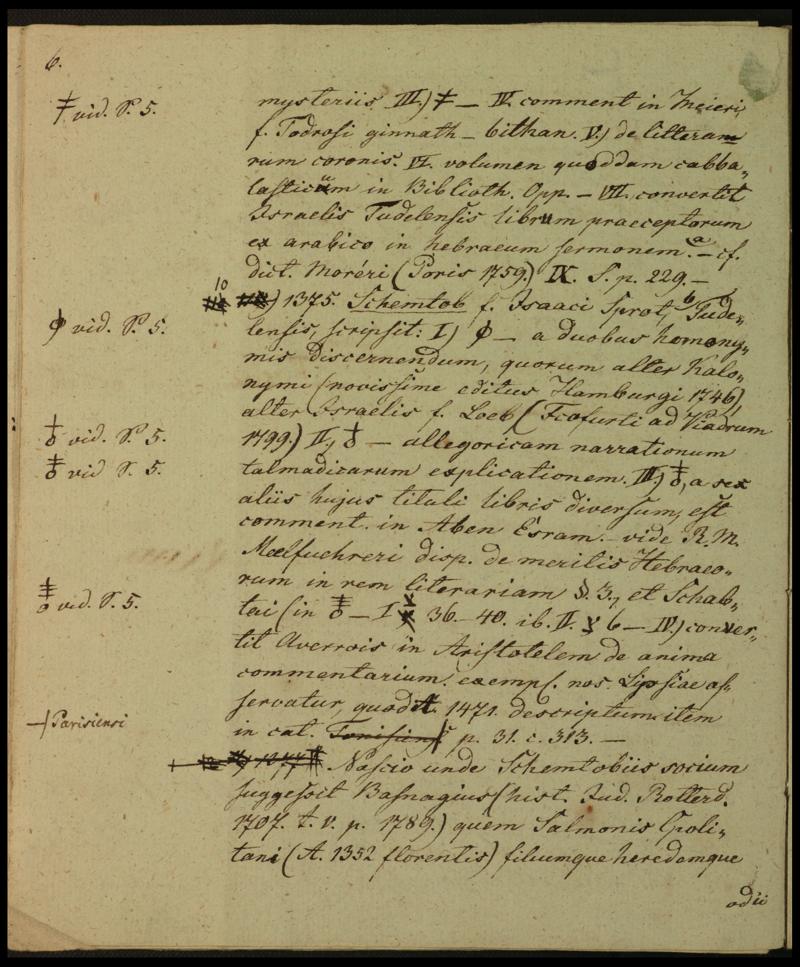 6.
vid. S. 5.
mysteriis III.) — IV. comment in Meieri,
f. Todrosi ginnath - bithan. V.) de litteram
rum coronis. VI. volumen quoddam cabba„
lasticum in Biblioth. Opp. — VII. convertit
Israelis Tudelensis librum praeceptorum
ex arabico in hebraeum sermonem. a — cf.
dict. Moréri (Paris 1759.) IX. S. p. 229. —
10
) 1375. Schemtob f. Isaaci Sprot, b Tude„
vid. S. 5.
lensis, scripsit: I) ϕ — a duobus homony„
mis discernendum, quorum alter Kalo„
nymi (novissime editus Hamburgi 1746)
alter Israelis f. Loeb (Fcofurti ad Viadrum
vid. S. 5.
1799.) II., — allegoricam narrationum
vid S. 5.
talmadicarum explicationem. III.) , a sex
aliis hujus tituli libris diversum, est
comment. in Aben Esram. — vide R. M.
Maelfuehreri disp. de meritis Hebraeo„
rum in rem literariam §. 3., et Schab„
vid. S. 5.
tai (in — I 36. — 40. ib. II. 6 — IV.) conver„
tit Averrois in Aristotelem de anima
commentarium. exempl. nos. Lipsiae as„
servatur, quod A. 1471. descriptum. item
Parisiensi
in cat. p. 31. c. 313. —
Nascio unde Schemtobiis socium
suggessit Basnagius (hist. Jud. Rotterd.
1707. t. v. p. 1789.) quem Salmonis Spoli„
tani (A. 1352 florentis) filiumque heredemque
odii